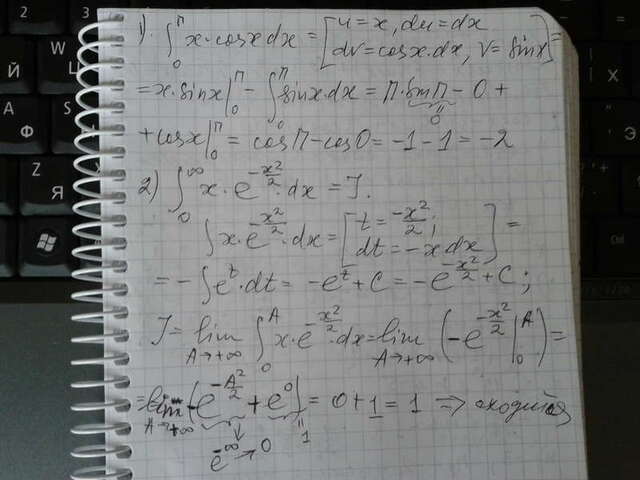 1) ∫₀^π x·cosx dx = [u = x, du = dx
dv = cosx·dx, v = sinx] =
= x·sinx|₀^π − ∫₀^π sinx·dx = π·sinπ − 0 +
0
+ cosx|₀^π = cosπ − cos0 = −1 − 1 = −2
2) ∫₀^∞ x·e^(−x²/2)·dx = J.
∫x·e^(−x²/2)·dx = [t = −x²/2;
dt = −x dx] =
= −∫e^t·dt = −e^t + C = −e^(−x²/2) + C;
J = lim_(A→+∞) ∫₀^A x·e^(−x²/2)·dx = lim_(A→+∞) (−e^(−x²/2)|₀^A) =
= lim_(A→+∞) (−e^(−A²/2) + e⁰) = 0 + 1 = 1 ⇒ сходится
e^(−∞) → 0
1
2
3
Й
Ф
Ы
Я
Z
Э